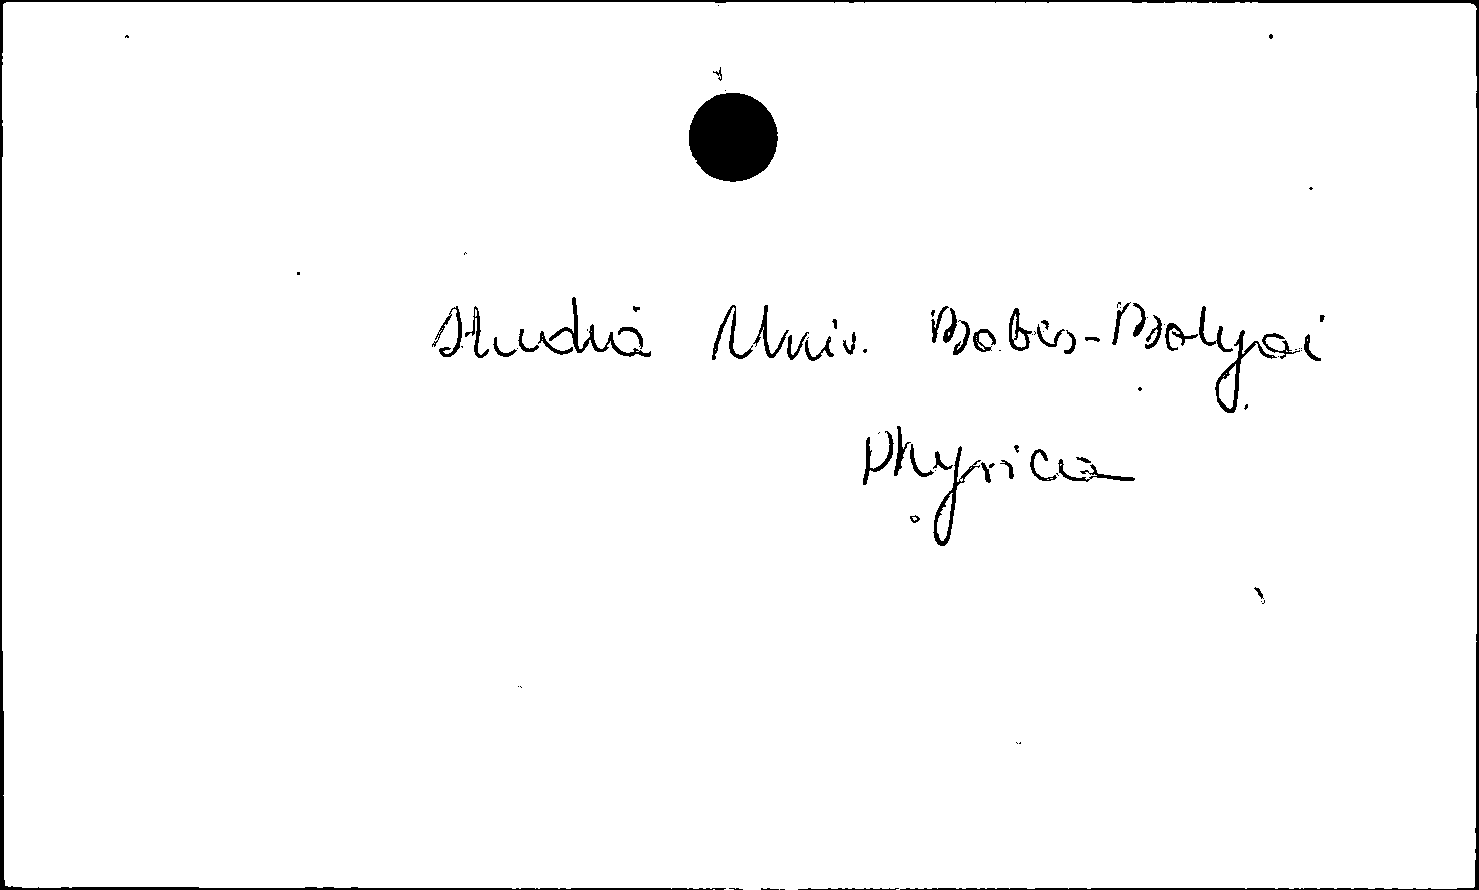 Studia Univ. Babes-Bolyai
Physica